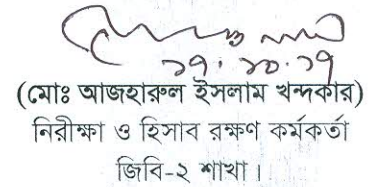 ১৭.১০.১৭
(মোঃ আজহারুল ইসলাম খন্দকার)
নিরীক্ষা ও হিসাব রক্ষণ কর্মকর্তা
জিবি-২ শাখা।